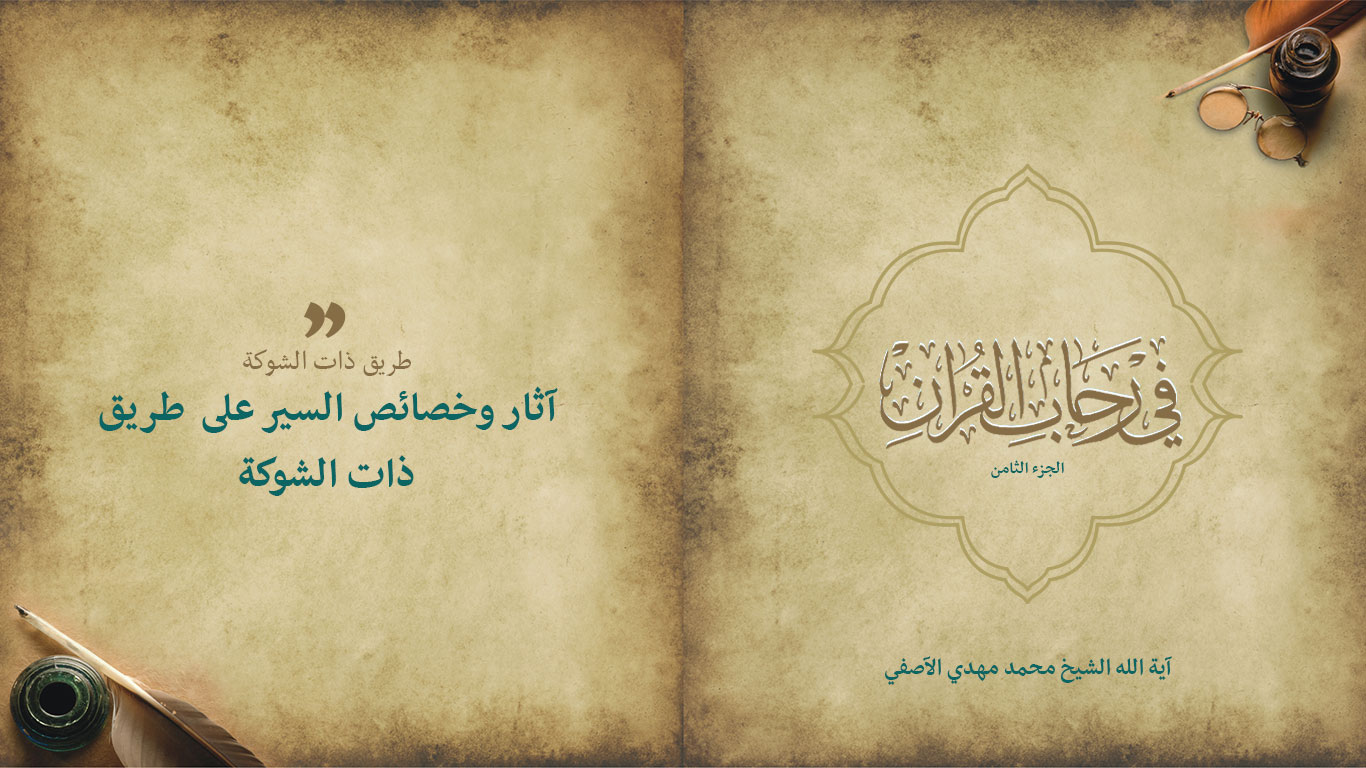 في رحاب القرآن
الجزء الثامن
آية الله الشيخ محمد مهدي الآصفي
”
طريق ذات الشوكة
آثار وخصائص السير على طريق
ذات الشوكة